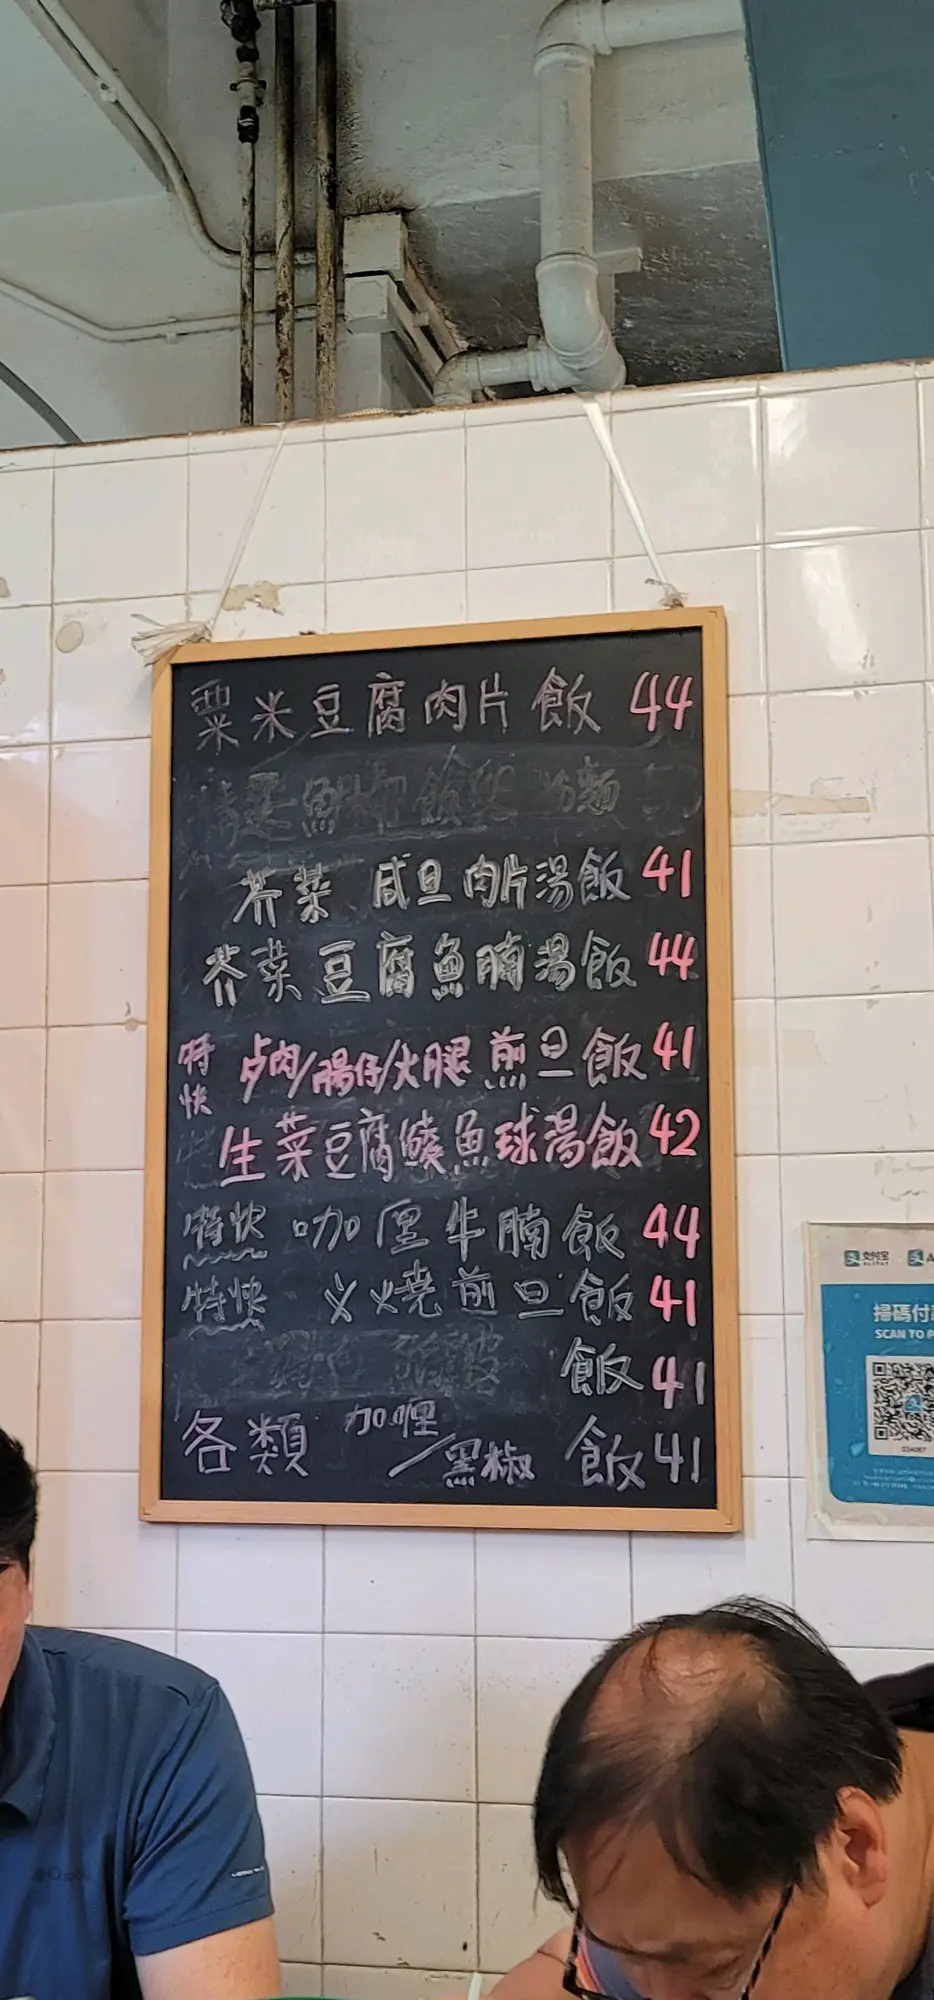 粟米豆腐肉片飯 44
芥菜 咸旦肉片湯飯 41
芥菜豆腐魚腩湯飯 44
特快 卢肉/腸仔/火腿 煎旦飯 41
生菜豆腐鯪魚球湯飯 42
特快 咖厘牛腩飯 44
特快 义燒煎旦飯 41
飯 41
各類 咖喱/黑椒 飯 41
支付宝
ALIPAY
掃碼付
SCAN TO P